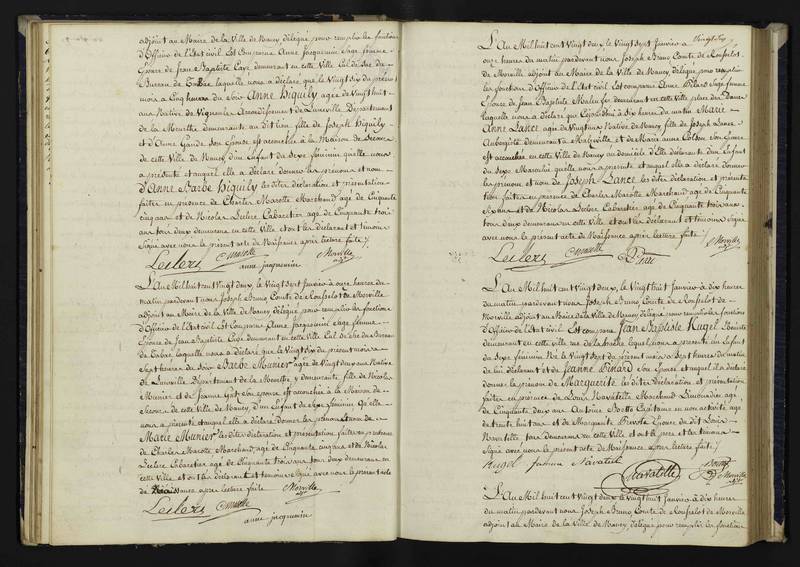 adjoint au Maire de la Ville de Nancy délégué pour remplir les fonctions
d'Officier de l'état civil. Est comparue Anne Jacquemin Sage femme
Epouse de Jean Baptiste Caye demeurant en cette Ville
laquelle nous a déclaré que le Vingt six du présent
mois à Cinq heures du Soir Anne Higuily agée de Vingt huit
ans Native de Vigneule Arrondissement de Luneville Département
de la Meurthe demeurante au dit lieu fille de Joseph Higuily
et d'Anne Gande son Epouse est accouchée à la Maison de Secours
de cette Ville de Nancy d'un Enfant du Sexe féminin qu'elle nous
a présenté et auquel elle a déclaré donner les prénoms et nom
d'Anne Barbe Higuily les dites déclaration et présentation
faites en présence de Charles Marotte Marchand agé de Cinquante
cinq ans et de Nicolas Leclerc Cabaretier agé de Cinquante trois
ans tous deux demeurans en cette Ville et ont les déclarant et témoins
Signé avec nous le présent acte de Naissance après lecture faite
Leclerc CMarotte Morville
anne jacquemin
L'An Mil huit cent Vingt deux, le Vingt sept Janvier à onze heures du
matin pardevant nous Joseph Bruno Comte de Rousselot de Morville
adjoint au Maire de la Ville de Nancy délégué pour remplir les fonctions
d'Officier de l'Etat civil Est comparue Anne Jacquemin Sage femme
Epouse de Jean Baptiste Caye demeurant en cette Ville
laquelle nous a déclaré que le Vingt Six du présent mois à
Sept heures du Soir Barbe Munier agée de Vingt deux ans Native
de Luneville Département de la Meurthe y demeurante fille de Nicolas
Munier et de Jeanne son Epouse est accouchée à la Maison de
Secours de cette Ville de Nancy, d'un Enfant du Sexe féminin Qu'elle
nous a présenté et auquel elle a déclaré donner les prénom et nom de
Marie Munier les dites déclaration et présentation faites en présence
de Charles Marotte Marchand agé de Cinquante cinq ans et de Nicolas
Leclerc Cabaretier agé de Cinquante trois ans tous deux demeurans en
cette Ville et ont les déclarant et témoins Signé avec nous le présent acte
de Naissance après lecture faite Morville
Leclerc CMarotte
anne jacquemin
Vingt Sep
L'An Mil huit cent Vingt deux, le Vingt sept Janvier à
onze heures du matin pardevant nous Joseph Bruno Comte de Rousselot
de Morville adjoint au Maire de la Ville de Nancy, délégué pour remplir
les fonctions d'Officier de l'Etat civil Est comparue Anne Sage femme
Epouse de Jean Baptiste demeurant en cette Ville place des Dames
laquelle nous a déclaré que Cejourd'hui à Six heures du matin Marie
Anne Lance agée de Vingt ans Native de Nancy fille de Joseph Lance
Aubergiste demeurant à et de Marie anne Colson Son Epouse
est accouchée en cette Ville de Nancy au domicile d'Elle déclarante d'un Enfant
du Sexe Masculin qu'elle nous a présenté et auquel elle a déclaré donner
les prénom et nom de Joseph Lance les dites déclaration et présentation
faites en présence de Charles Marotte Marchand agé de Cinquante
Six ans et de Nicolas Leclerc Cabaretier agé de Cinquante trois ans
tous deux demeurans en cette Ville et ont les déclarant et témoins Signé
avec nous le présent acte de Naissance après lecture faite
Leclerc CMarotte Morville
L'An Mil huit cent Vingt deux, le Vingt huit Janvier à dix heures
du matin pardevant nous Joseph Bruno Comte de Rousselot de
Morville adjoint au Maire de la Ville de Nancy délégué pour remplir les fonctions
d'Officier de l'Etat civil Est comparu Jean Baptiste Kugel
demeurant en cette ville rue de la lequel nous a présenté un Enfant
du Sexe féminin Né le Vingt sept du présent mois à Sept heures du matin
de lui déclarant et de Jeanne Pinard Son Epouse et auquel il a déclaré
donner le prénom de Marguerite les dites déclaration et présentation
faites en présence de Louis Navatelle Marchand Limonadier agé
de Cinquante deux ans Antoine Botte Capitaine en non activité agé
de trente huit ans et de Marguerite Prevote Epouse du dit Louis
Navatelle tous demeurans en cette Ville et ont le père et les témoins
Signé avec nous le présent acte de Naissance après lecture faite
Kugel femme Navatel
Navatelle Morville
L'An Mil huit cent Vingt deux le Vingt huit Janvier à dix heures
du matin pardevant nous Joseph Bruno Comte de Rousselot de Morville
adjoint au Maire de la Ville de Nancy, délégué pour remplir les fonctions